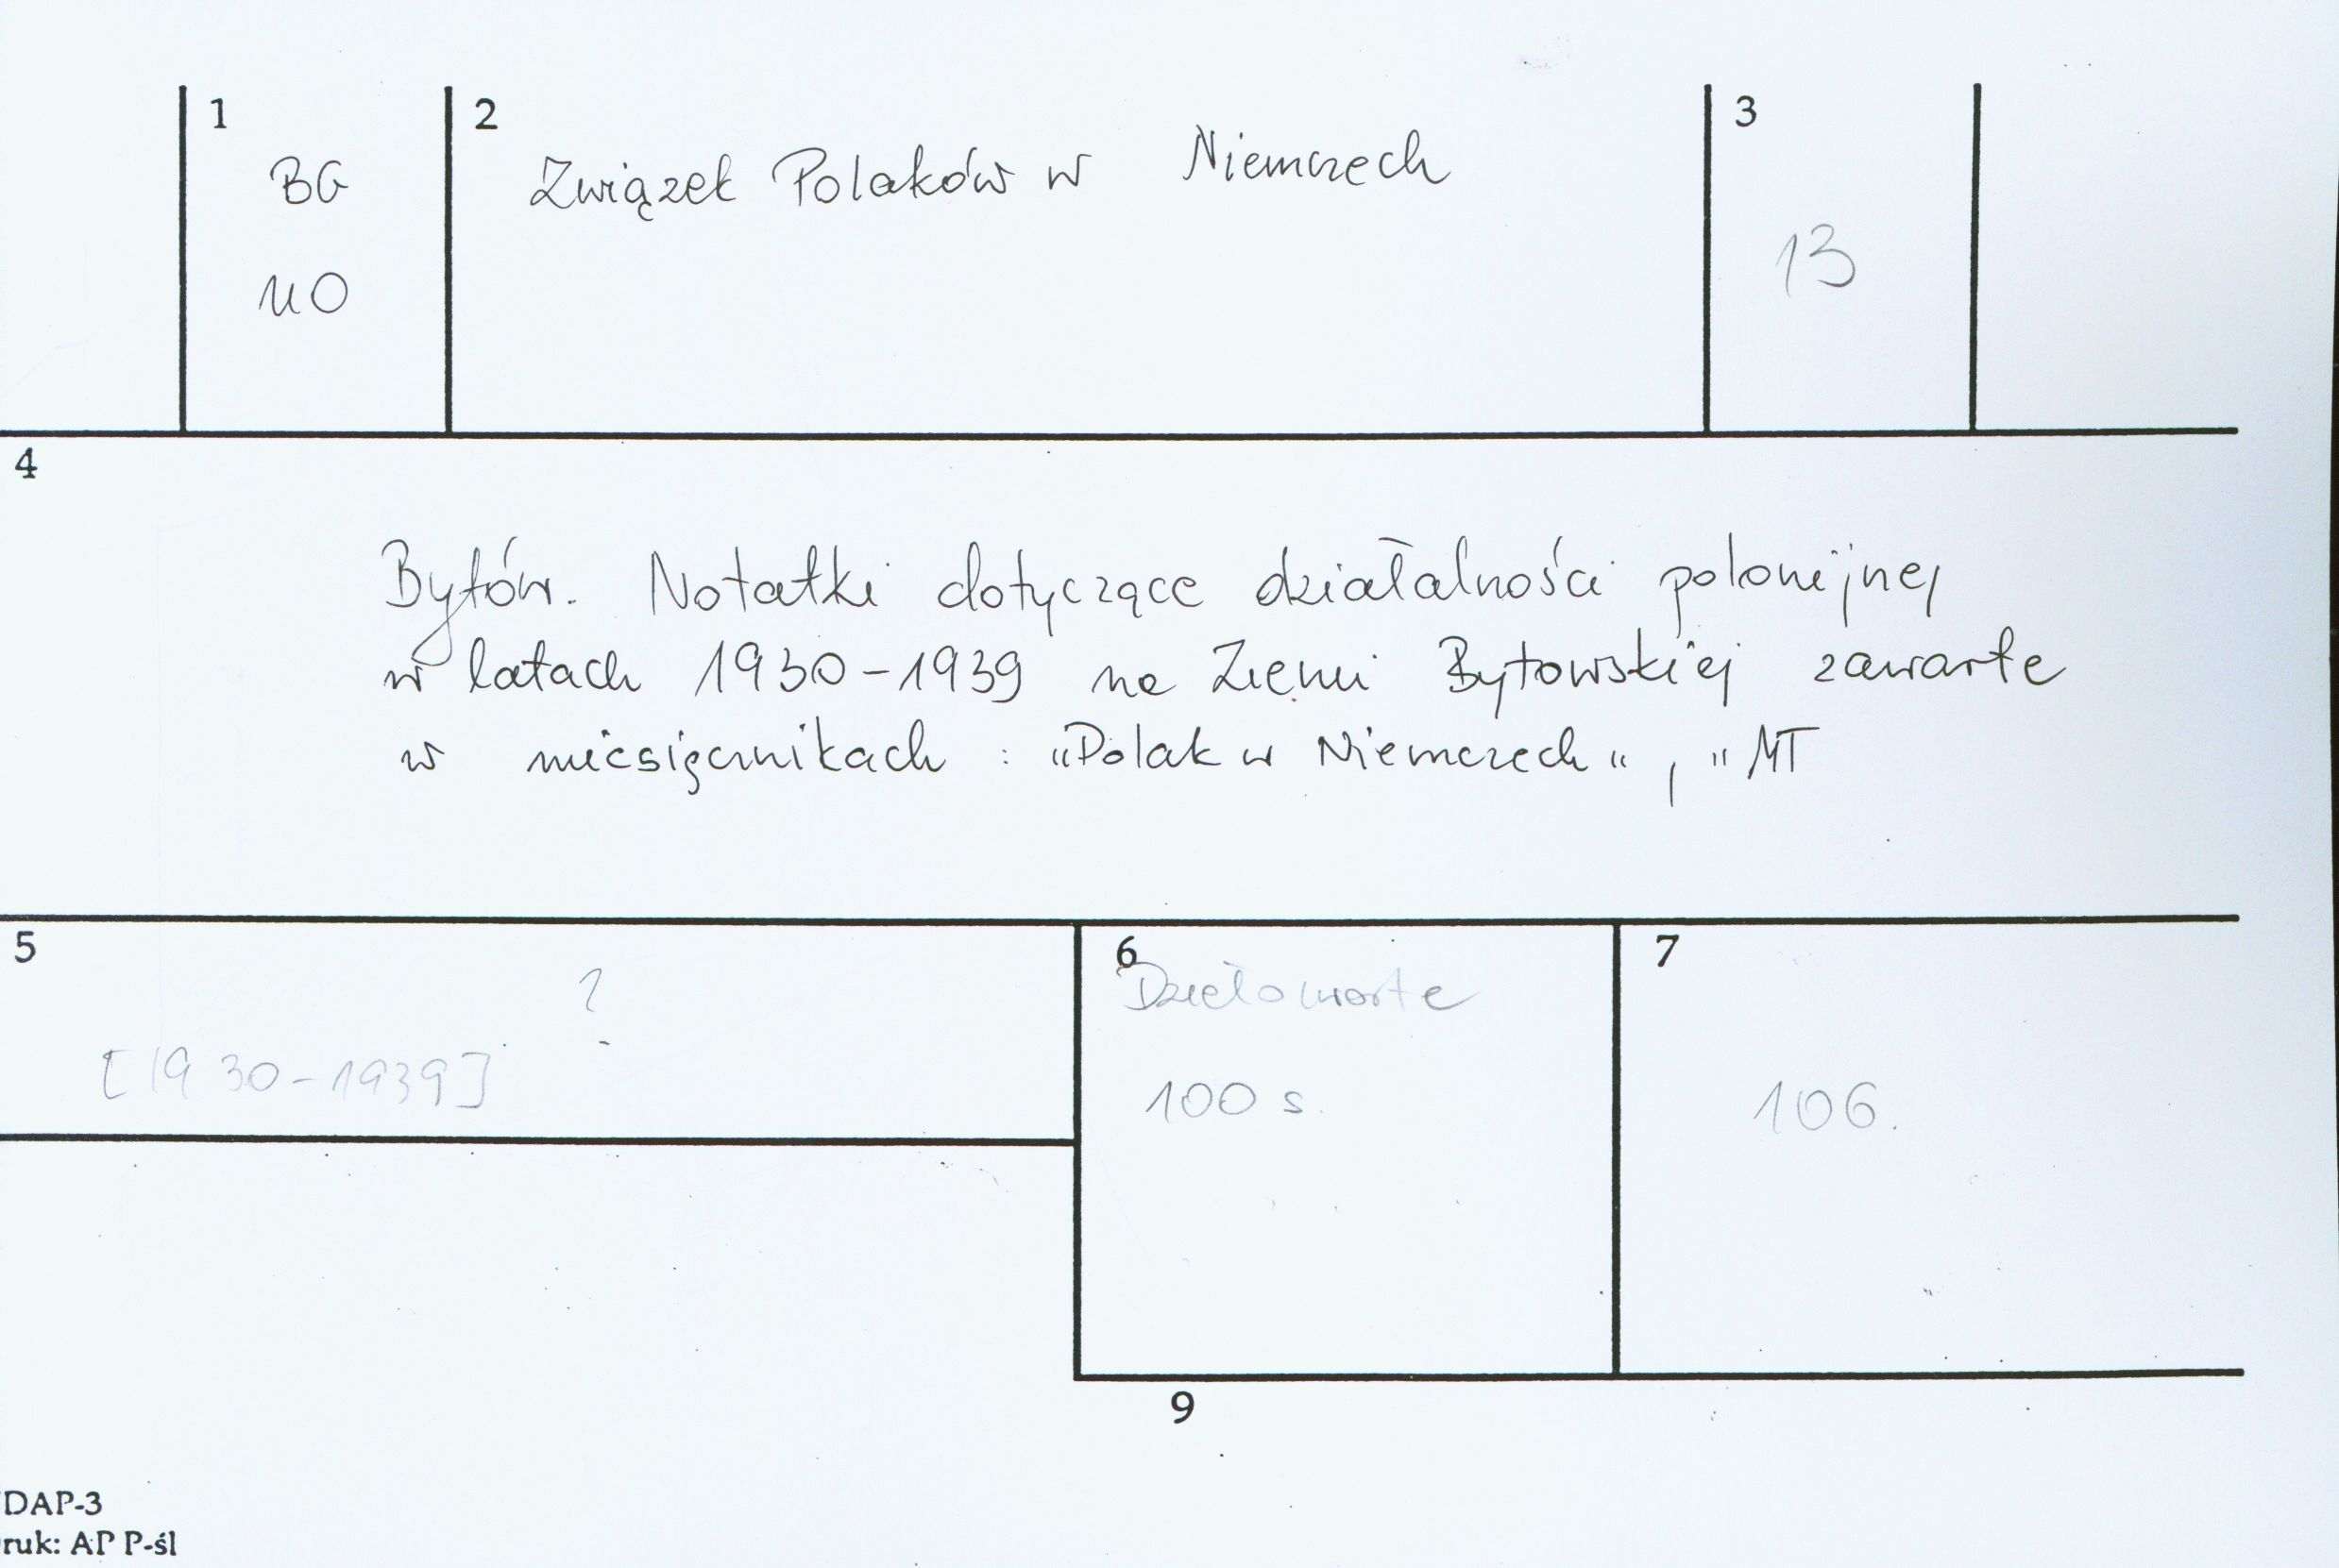 1
2
3
BG
Związek Polaków w Niemczech
UO
13
4
Bytów. Notatki dotyczące działalności polonijnej
w latach 1930-1939 na Ziemi Bytowskiej zawarte
w miesięcznikach : „Polak w Niemczech“, „MT
5
6
7
?
[1930-1939]
100 s.
106.
9
DAP-3
ruk: AP P-śl